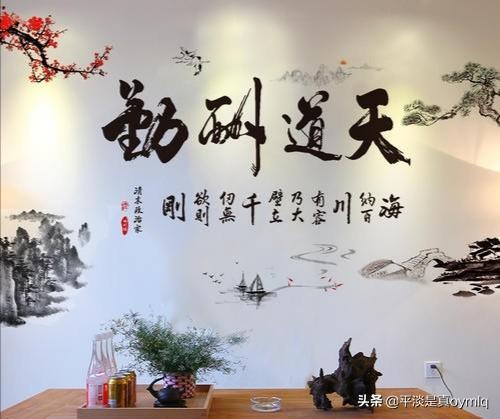 天道酬勤
海纳百川有容乃大壁立千仞無欲则剛
清末政治家
头条 @平淡是真oymlq